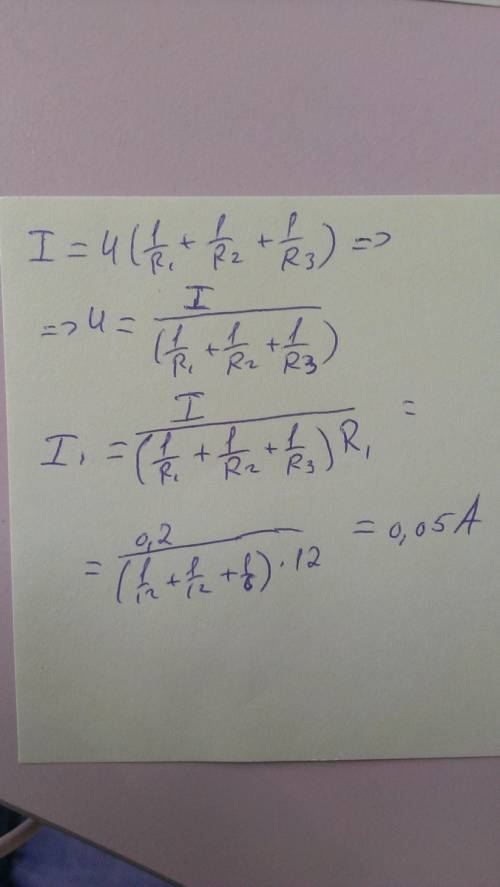 I = U(1/R₁ + 1/R₂ + 1/R₃) =>
=> U = I/(1/R₁ + 1/R₂ + 1/R₃)
I₁ = I/((1/R₁ + 1/R₂ + 1/R₃)R₁) =
= 0,2/((1/12 + 1/12 + 1/6)·12) = 0,05A